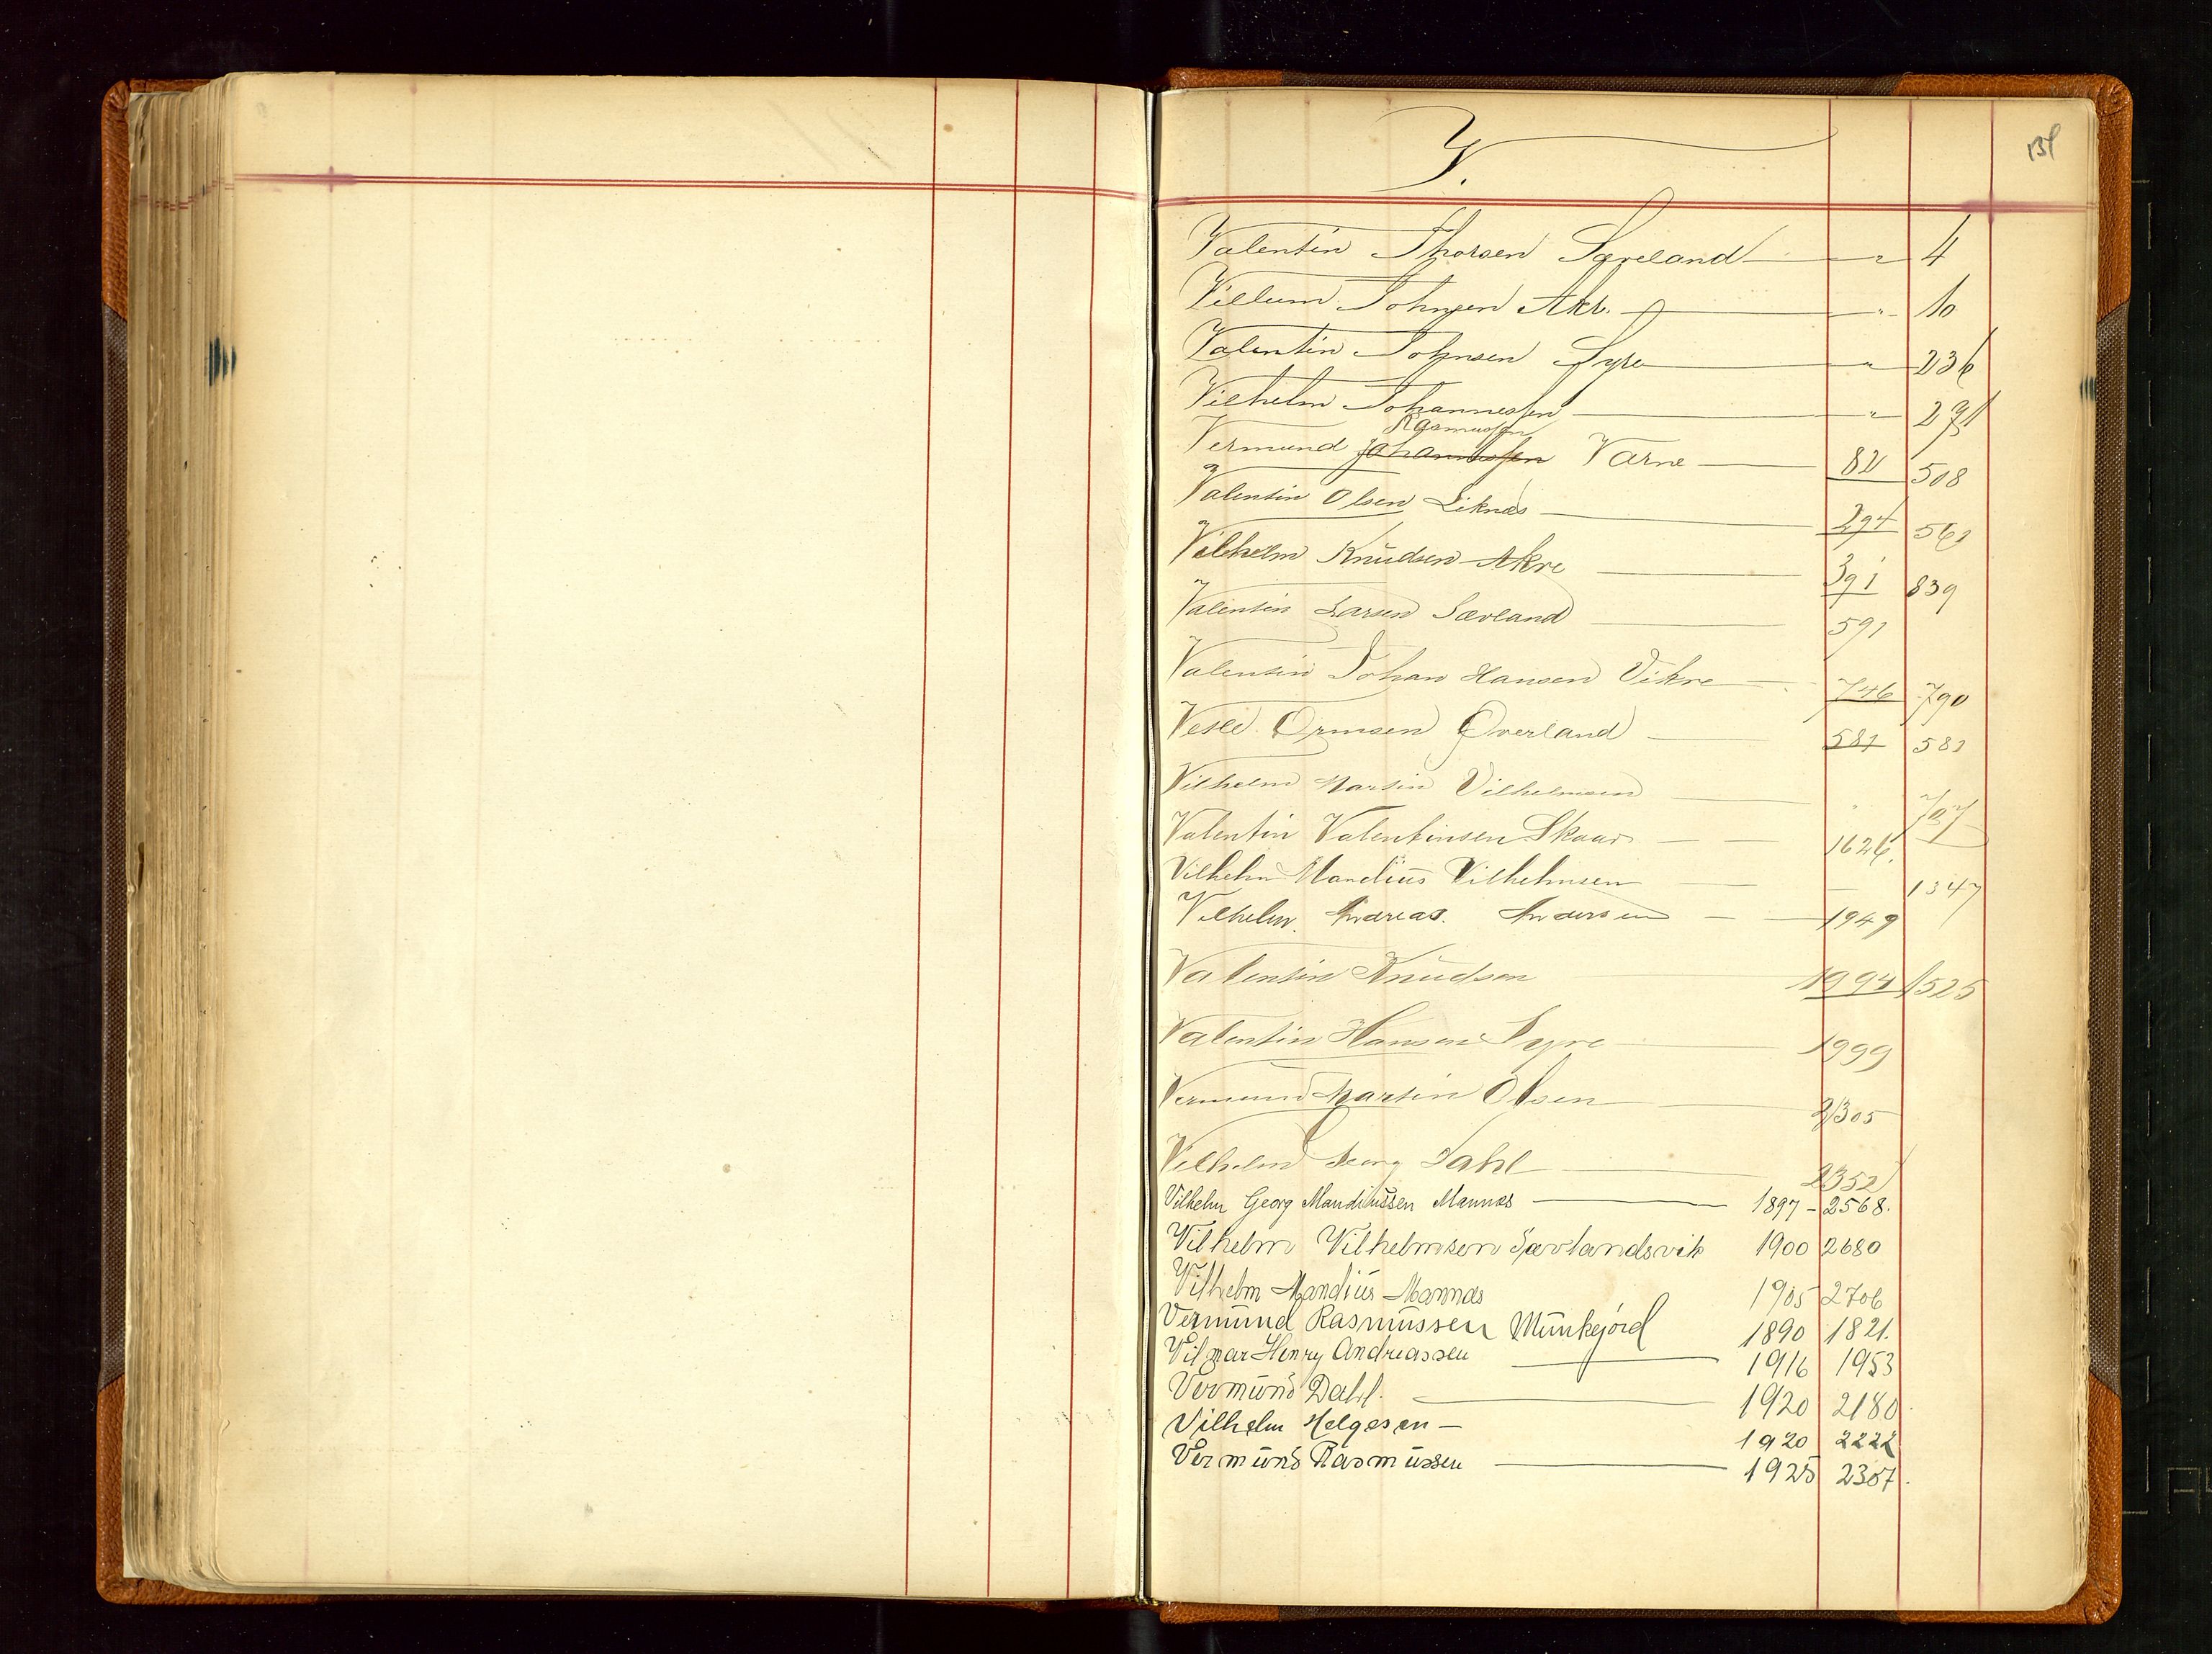 V.
Valentin Thorsen Sæveland " 4
Villum Johnsen Akr. " 10
Valentin Johnsen Syre " 236
Vilhelm Johannessen " 271
Rasmussen
Vermund Johannessen Varne 82 508
Valentin Olsen Liknæs 294 561
Vilhelm Knudsen Akre 391 839
Valentin Larsen Sævland 591
Valentin Johan Hansen Vikre 746 790
Vesle Ormsen Øverland 581 581
Vilhelm Martin Vilhelmsen " 707
Valentin Valentinsen Skaar 1626.
Vilhelm Mandius Vilhelmsen — 1347
Vilhelm. Andreas. Andersen 1949
Valentin Knudsen 1994 1525
Valentin Hansen Syre 1999
Vermund Martin Olsen 2305
Vilhelm Georg Dahl 2352
Vilhelm Georg Mandiussen Mannes 1897 - 2568.
Vilhelm Vilhelmsen Sævlandsvik 1900 2680
Vilhelm Mandius Mannes 1905 2706
Vermund Rasmussen Munkejord 1890 1821.
Vilmar Henry Andreassen 1916 1953
Vermund Dahl. 1920 2180.
Vilhelm Helgesen — 1920 2222
Vermund Rasmussen 1925 2307.